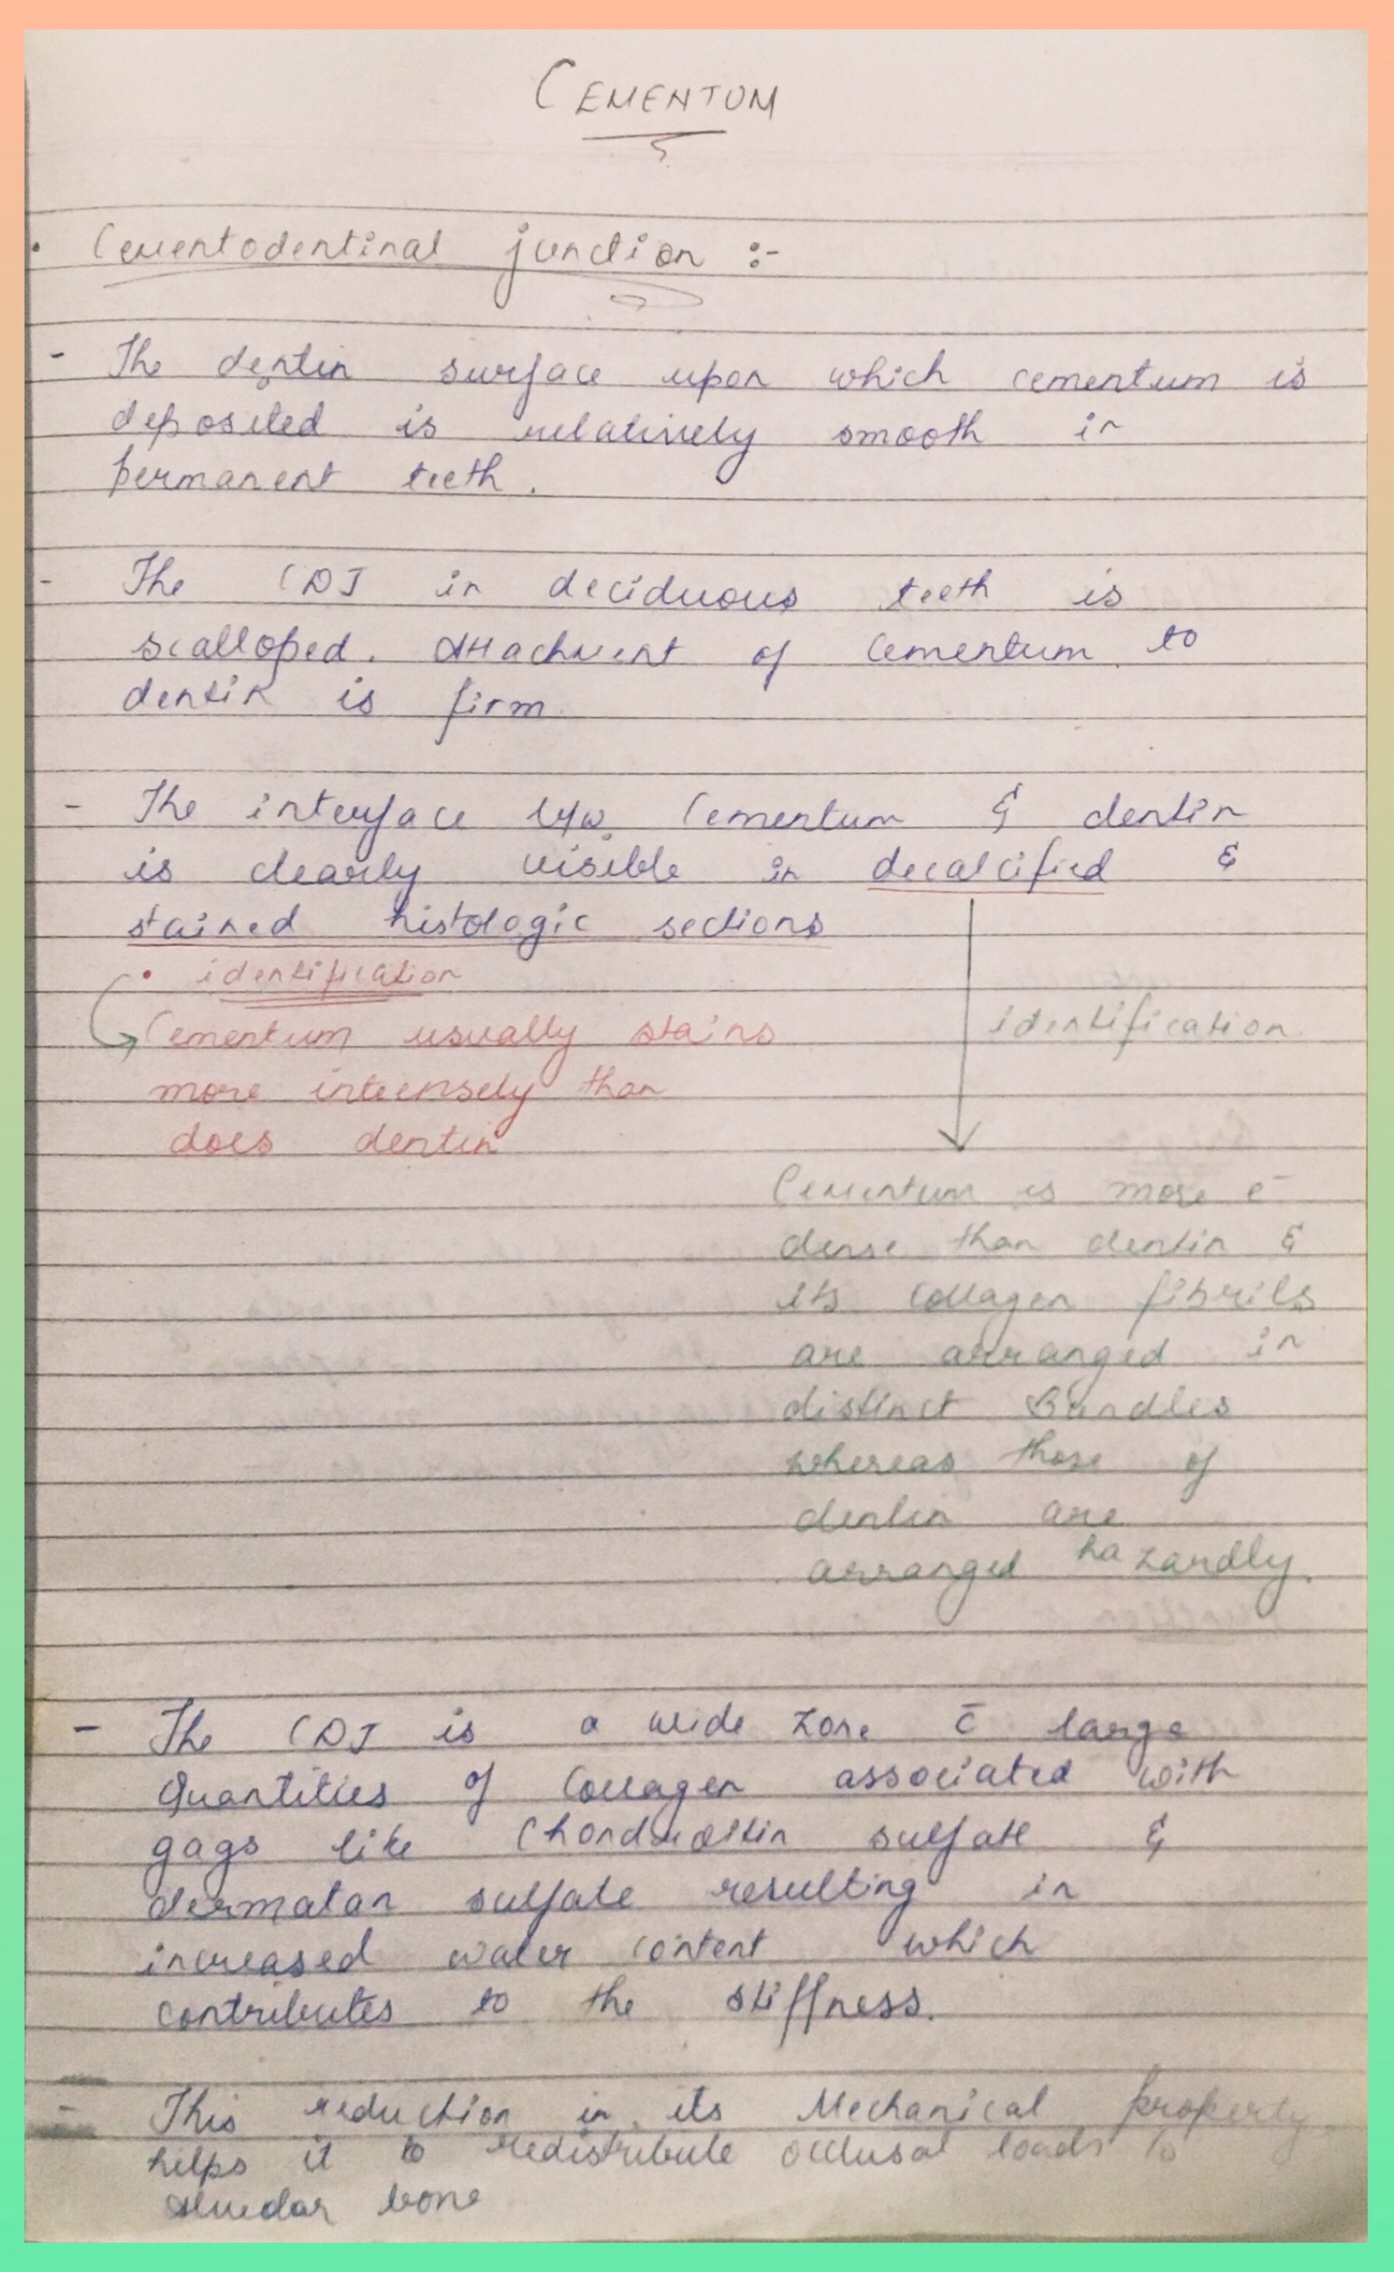 CEMENTUM
• Cementodentinal junction :-
- The dentin surface upon which cementum is
deposited is relatively smooth in
permanent teeth.
- The CDJ in deciduous teeth is
scalloped. Attachment of cementum to
dentin is firm
- The interface b/w Cementum & dentin
is clearly visible in decalcified &
stained histologic sections
• identification
Cementum usually stains
more inteensely than
does dentin
identification
Cementum is more e-
dense than dentin &
its collagen fibrils
are arranged in
distinct Bundles
whereas those of
dentin are
arranged hazardly.
- The CDJ is a wide zone c̄ large
Quantities of Collagen associated with
gags like Chondroitin sulfate &
dermatan sulfate resulting in
increased water content which
contributes to the stiffness.
- This reduction in its Mechanical property
helps it to redistribute occlusal loads to
alveolar bone